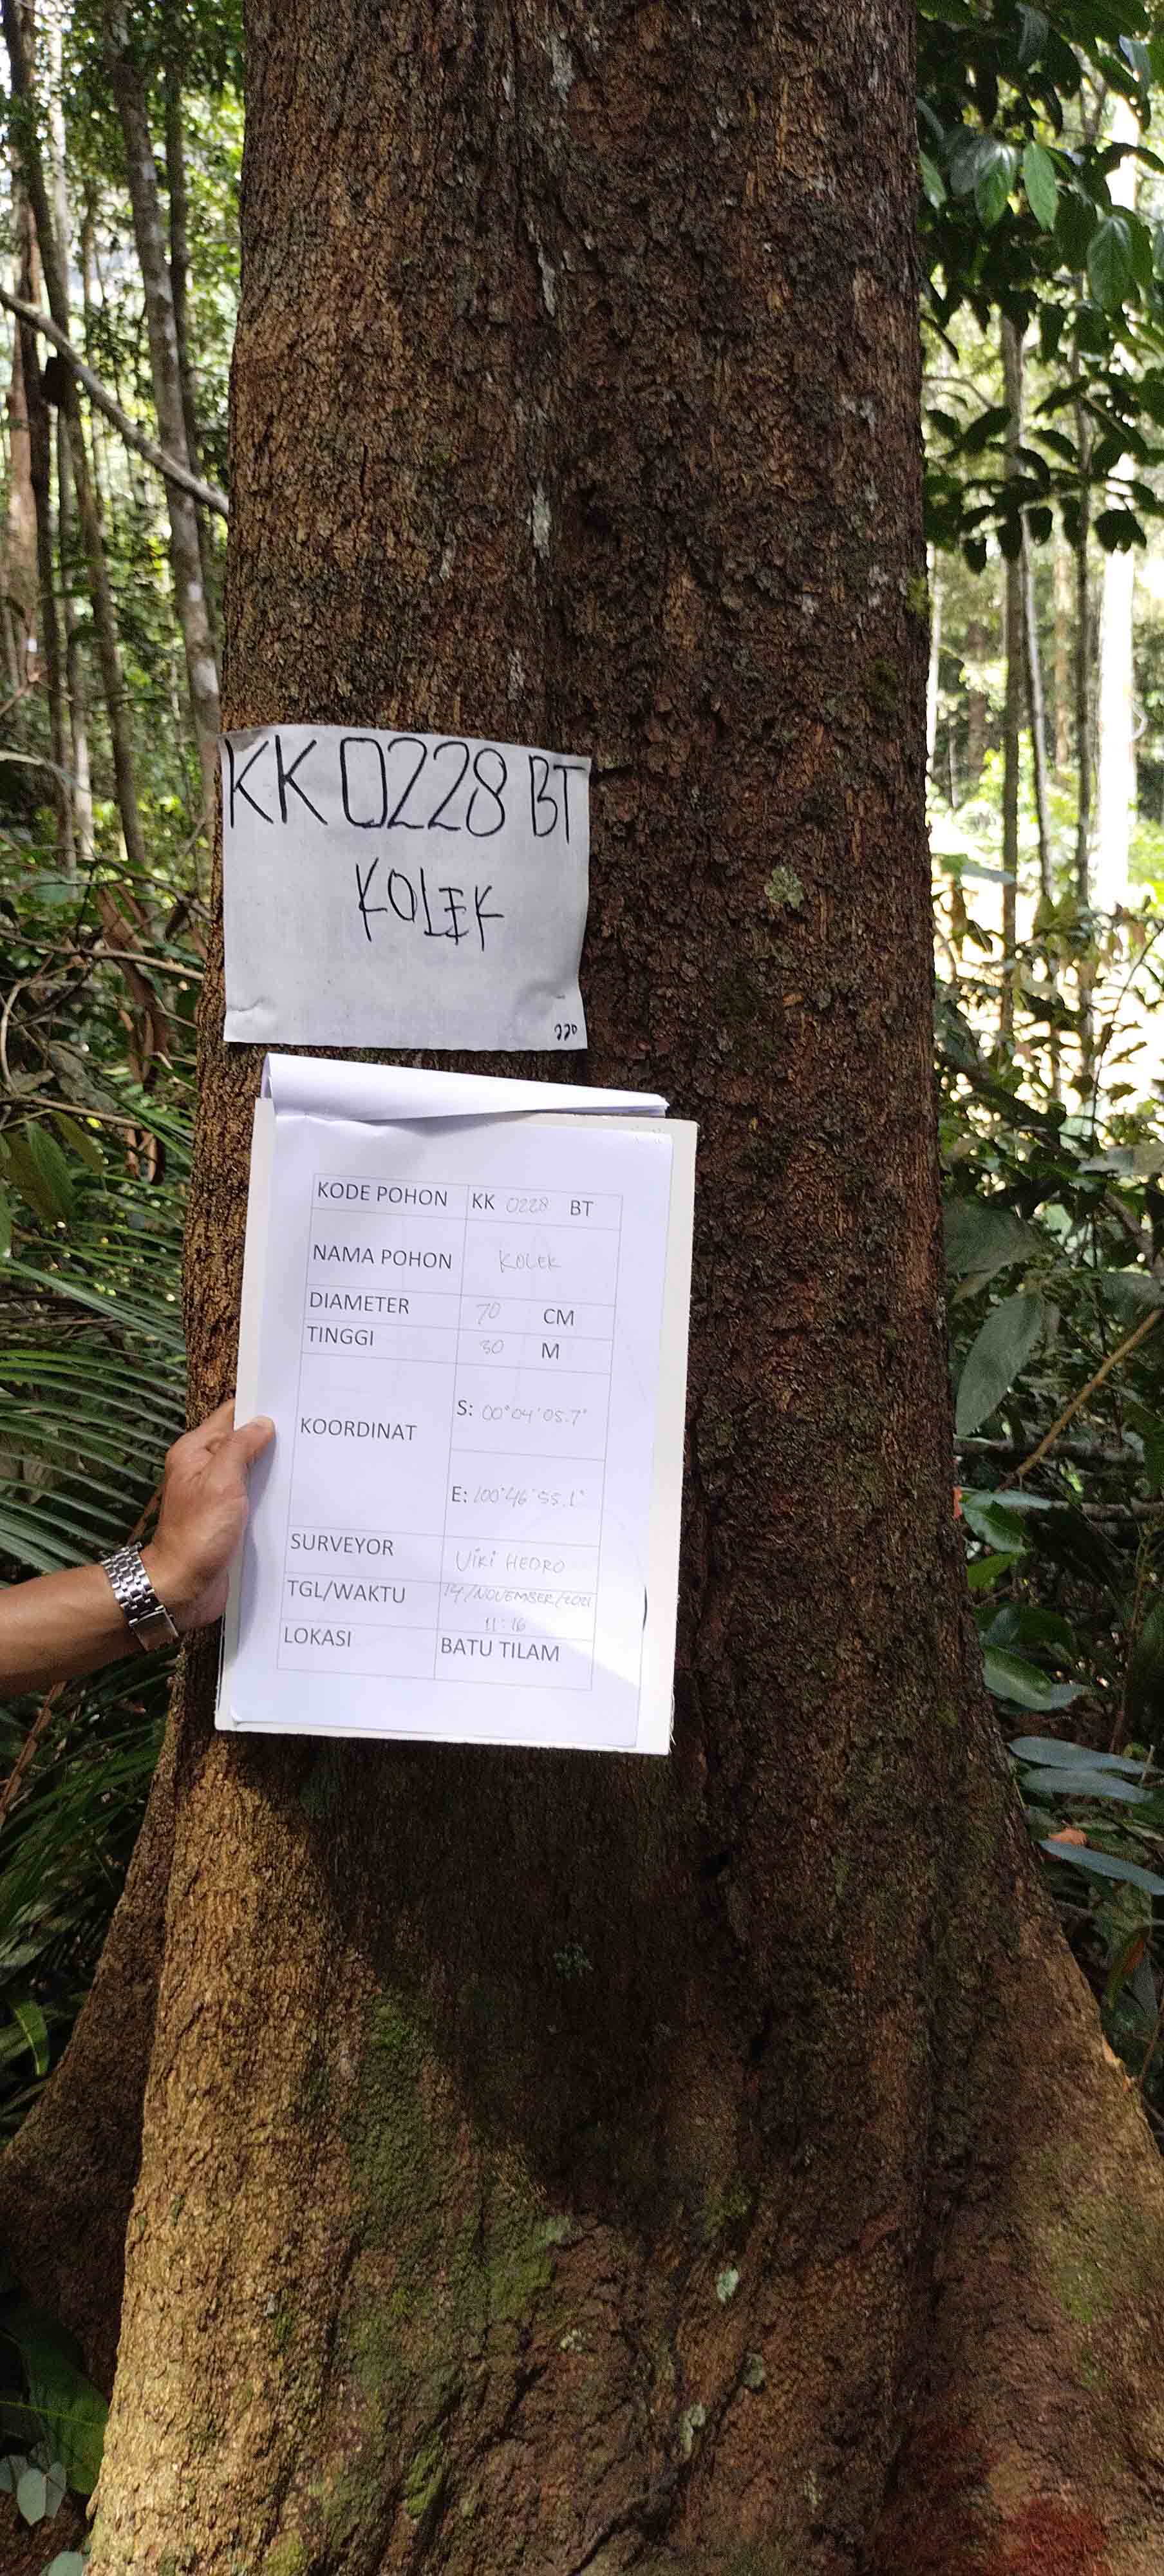 KK 0228 BT
KOLEK
220
KODE POHON KK 0228 BT
NAMA POHON KOLEK
DIAMETER 70 CM
TINGGI 30 M
KOORDINAT S: 00°04'05.7"
E: 100°46'55.1"
SURVEYOR VIKI HEDRO
TGL/WAKTU 14/NOVEMBER/2021
11:16
LOKASI BATU TILAM